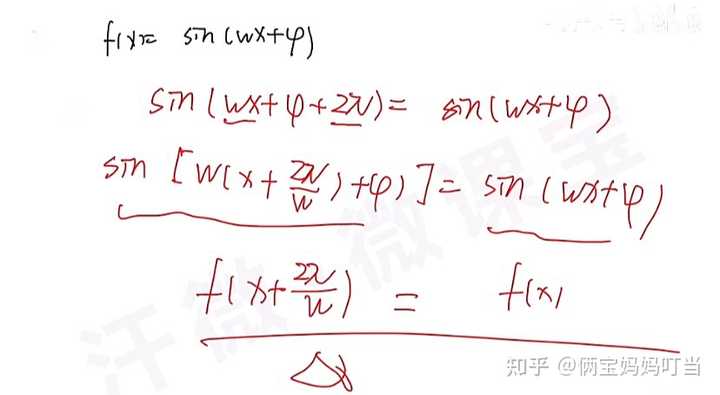 f(x)= sin(wx+φ)
sin(wx+φ+2π)= sin(wx+φ)
sin[w(x+2π/w)+φ)]= sin(wx+φ)
f(x+2π/w) = f(x)
知乎 @俩宝妈妈叮当